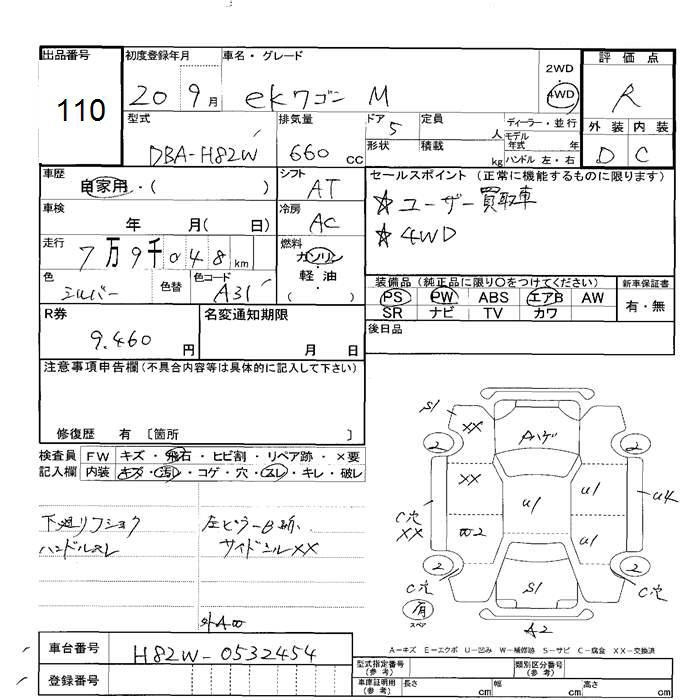 出品番号 110
初度登録年月 20 9月
車名・グレード ekワゴン M
2WD
4WD
評価点 R
外装 内装
D C
型式 DBA-H82W
排気量 660 cc
ドア 5
形状
定員 人
積載 kg
ディーラー・並行
モデル年式 年
ハンドル 左・右
車歴 自家用・( )
シフト AT
セールスポイント(正常に機能するものに限ります)
☆ユーザー買取車
☆4WD
車検 年 月( 日)
冷房 AC
走行 7万9千048km
燃料 ガソリン
軽・油
( )
色 シルバー 色替
色コード A31
装備品(純正品に限り○をつけてください)
PS PW ABS エアB AW
SR ナビ TV カワ
新車保証書
有・無
R券 9.460円
名変通知期限 月 日
後日品
注意事項申告欄(不具合内容等は具体的に記入して下さい)
修復歴 有 〔箇所 〕
検査員記入欄
FW キズ・飛石・ヒビ割・リペア跡・×要
内装 キズ・汚レ・コゲ・穴・スレ・キレ・破レ
下廻リフショク
ハンドルスレ
左ピラーB
サイドシルXX
S1 XX Aハゲ
2 2
XX U1 U1 U4
C穴
XX W2 U1
2 2
C穴 S1 C穴
有 スペア
A2
A=キズ E=エクボ U=凹み W=補修跡 S=サビ C=腐食 XX=交換済
車台番号 H82W-0532454
登録番号
型式指定番号(参考)
類別区分番号(参考)
車庫証明用(参考) 長さ cm 幅 cm 高さ cm